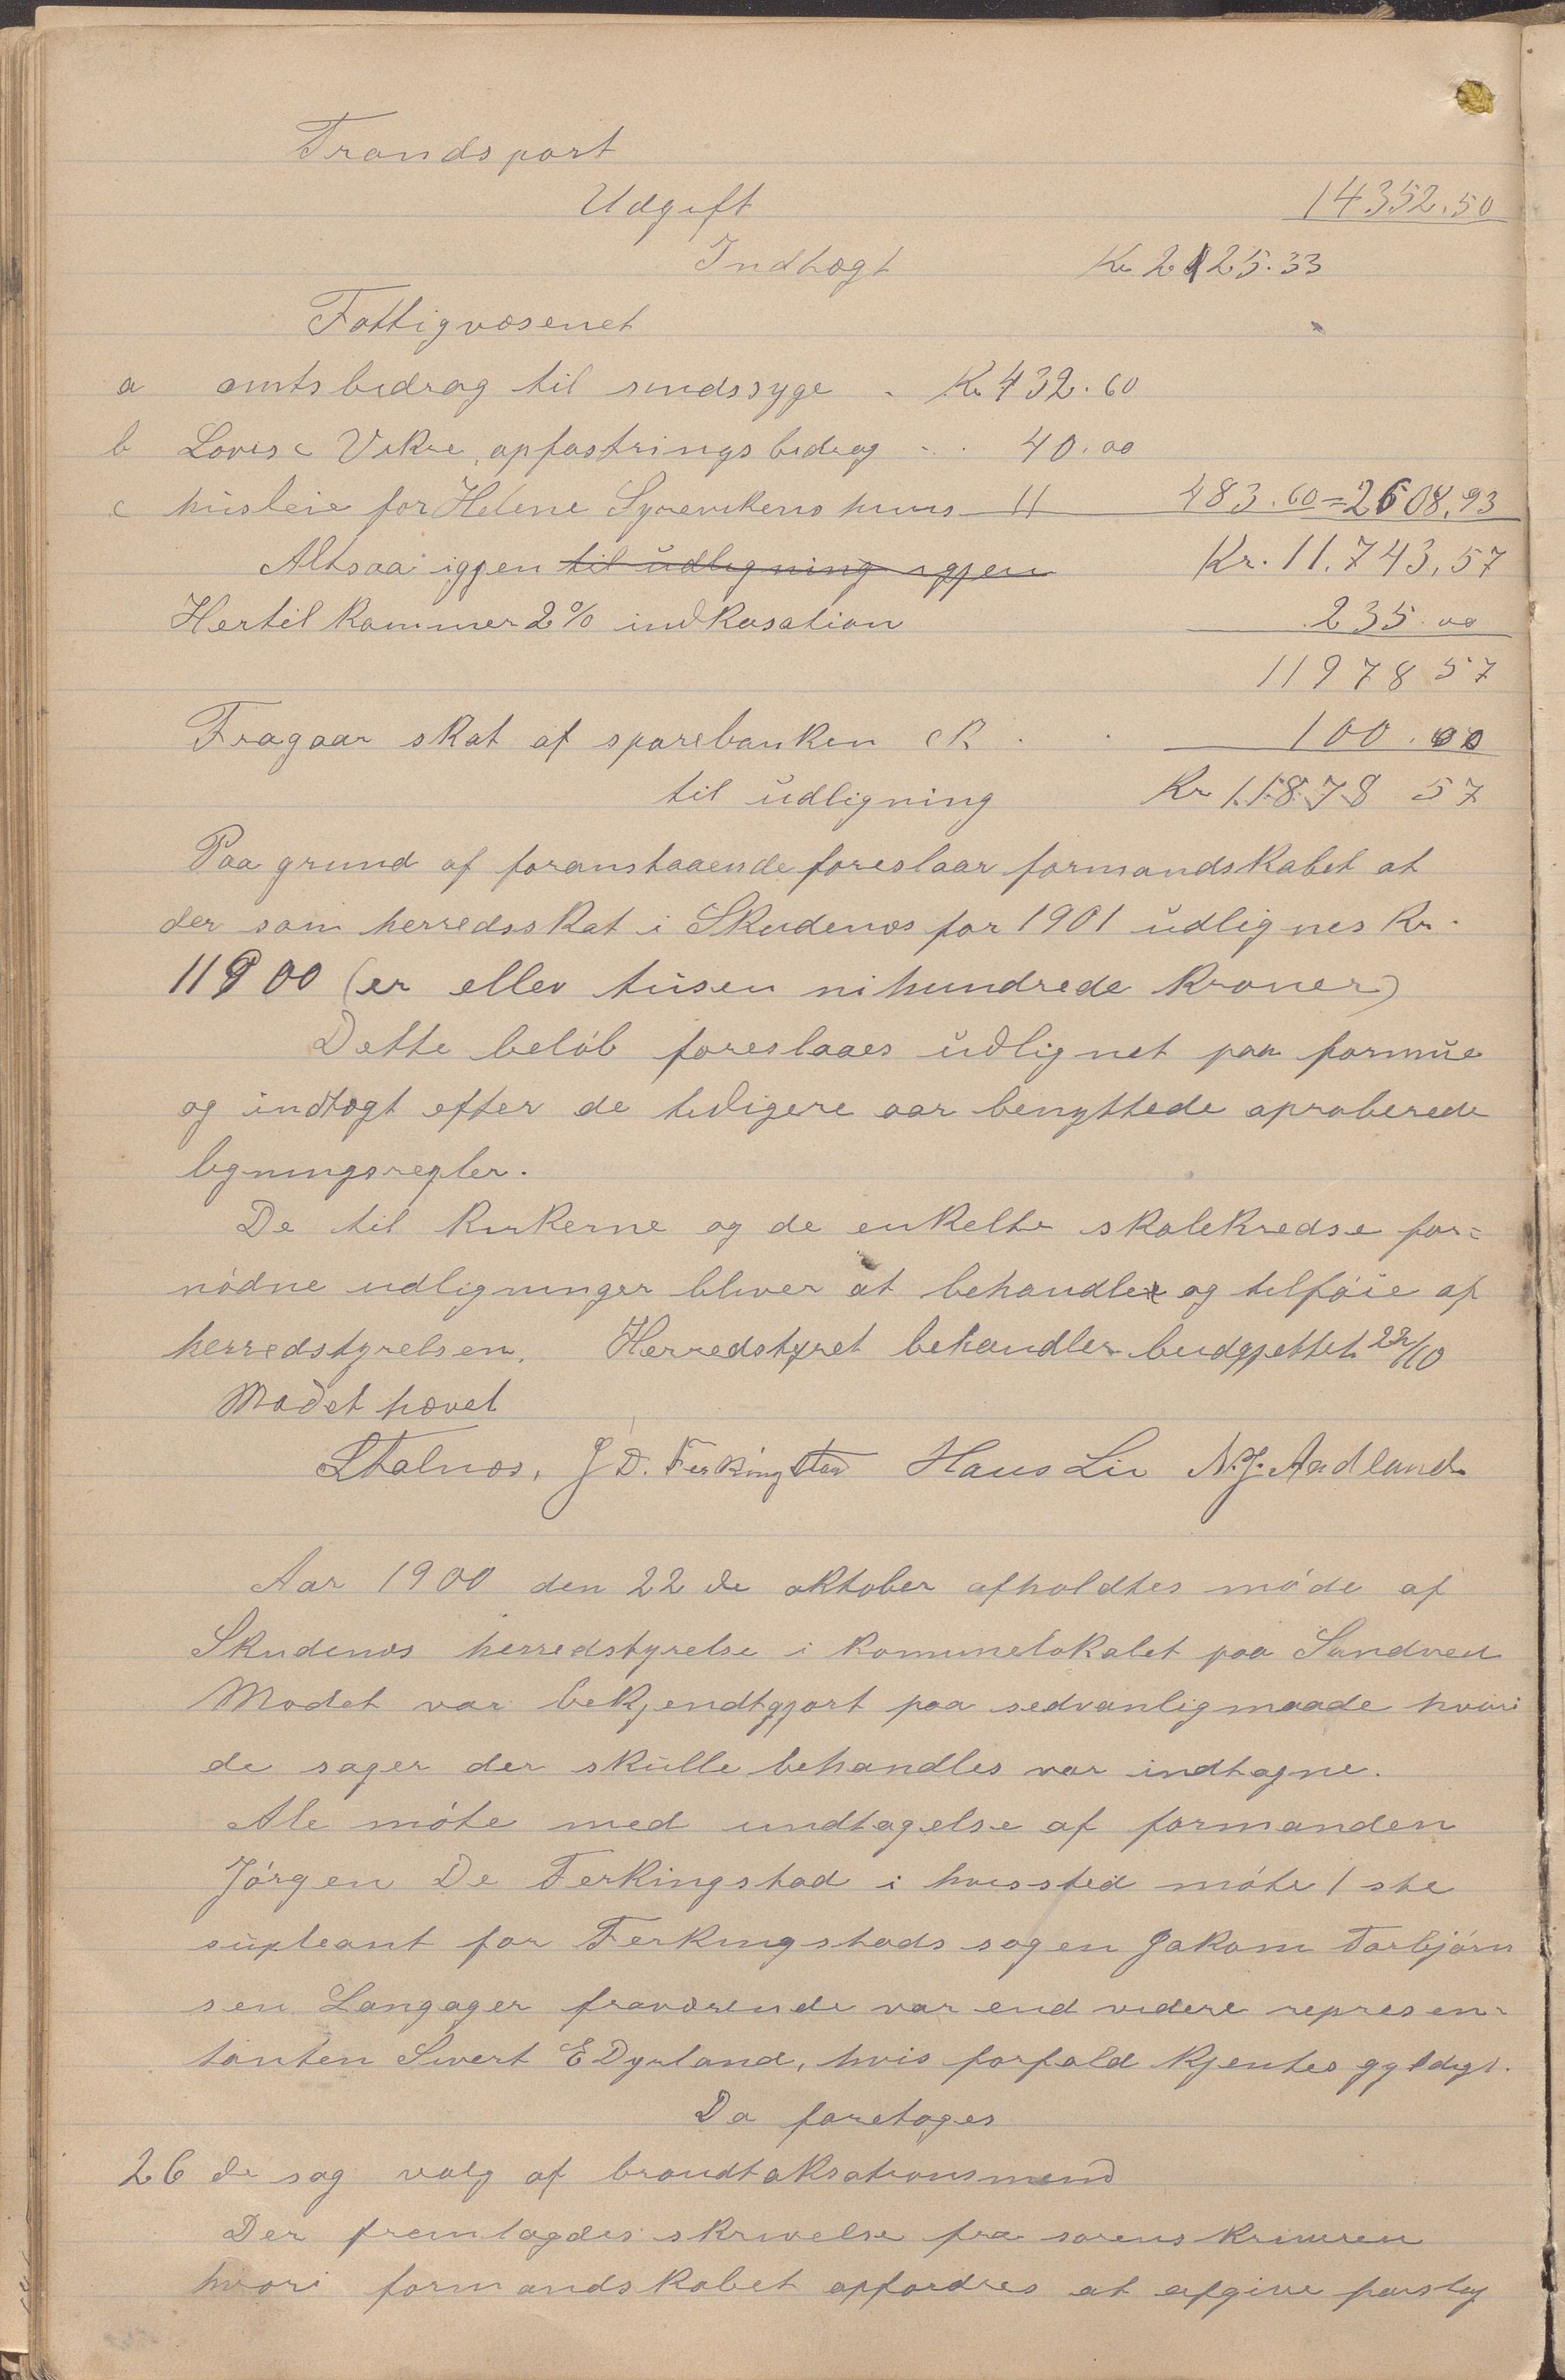 Trandsport
Udgift 14352.50
Indtægt Kr 2125.33
Fattigvæsenet
a amtsbidrag til sindssyge . Kr 432.60
b Lovise Vikre, opfostringsbidrag . . 40.00
c husleie for Helene Syrevikens huus 11 483.60=2608.93
Altsaa igjen til udligning igjen Kr. 11.743,57
Hertil kommer 2% indkasation 235.00
11978 57
Fragaar skat af sparebanken ck . . 100.00
til udligning Kr 11878 57
Paa grund af foranstaaende foreslaar formandskabet at
der som herredsskat i Skudenæs for 1901 udlignes Kr.
11900 (er ellev tusen nihundrede kroner)
Dette beløb foreslaaes udlignet paa formue
og indtægt efter de tidligere aar benyttede aproberede
ligningsregler.
De til kirkerne og de enkelte skolekredse for=
nødne udligninger bliver at behandle og tilføie af
herredstyrelsen. Herredstyret behandler budgjettet 22/10
Mødet hævet
LThalnes, J D. Ferkingstad Hans Lie N.J. Aadland
Aar 1900 den 22de oktober afholdtes møde af
Skudenæs herredstyrelse i kommunelokalet paa Sandved
Mødet var bekjendtgjort paa sedvanlig maade hvori
de sager der skulle behandles var indtagne.
Ale møte med undtagelse af formanden
Jørgen De Ferkingstad i hvissted møte 1ste
supleant for Ferkingstads sogen Jakom Torbjørn
sen Langager fraværende var end videre represen-
tanten Sivert E Dyrland, hvis forfald kjentes gyldigt.
Da foretoges
26de sag valg af brandtaksationsmend
Der fremlagdes skrivelse fra sorenskriveren
hvori formandskabet opfordres at afgive forslag